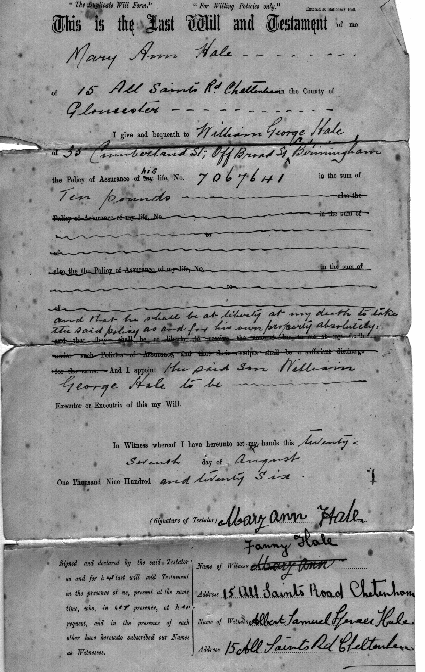 "The Duplicate Will Form." "For Willing Policies only."
This is the Last Will and Testament of me
Mary Ann Hale
of 15 All Saints Rd Cheltenham in the County of
Gloucester
I give and bequeath to William George Hale
of 55 Cumberland St, Off Broad St, Birmingham
the Policy of Assurance of my his life, No. 7067641 in the sum of
Ten pounds also the
Policy of Assurance of my life, No. in the sum of
or
also the the Policy of Assurance of my life, No. in the sum of
or
and that he shall be at liberty at my death to take
the said policy as and for his own property absolutely.
And I appoint the said son William
George Hale to be
Executor or Executrix of this my Will.
In Witness whereof I have hereunto set my hands this twenty
seventh day of August
One Thousand Nine Hundred and twenty Six.
(Signature of Testator) Mary Ann Hale
Fanny Hale
Signed and declared by the said Testator
Name of Witness Mary Ann
as and for her last will and Testament
in the presence of us, present at the same
Address 15 All Saints Road Chetenham
time, who, in her presence, at her
request, and in the presence of each
Name of Witness Albert Samuel Hale
other have hereunto subscribed our Names
as Witnesses.
Address 15 All Saints Rd Cheltenham